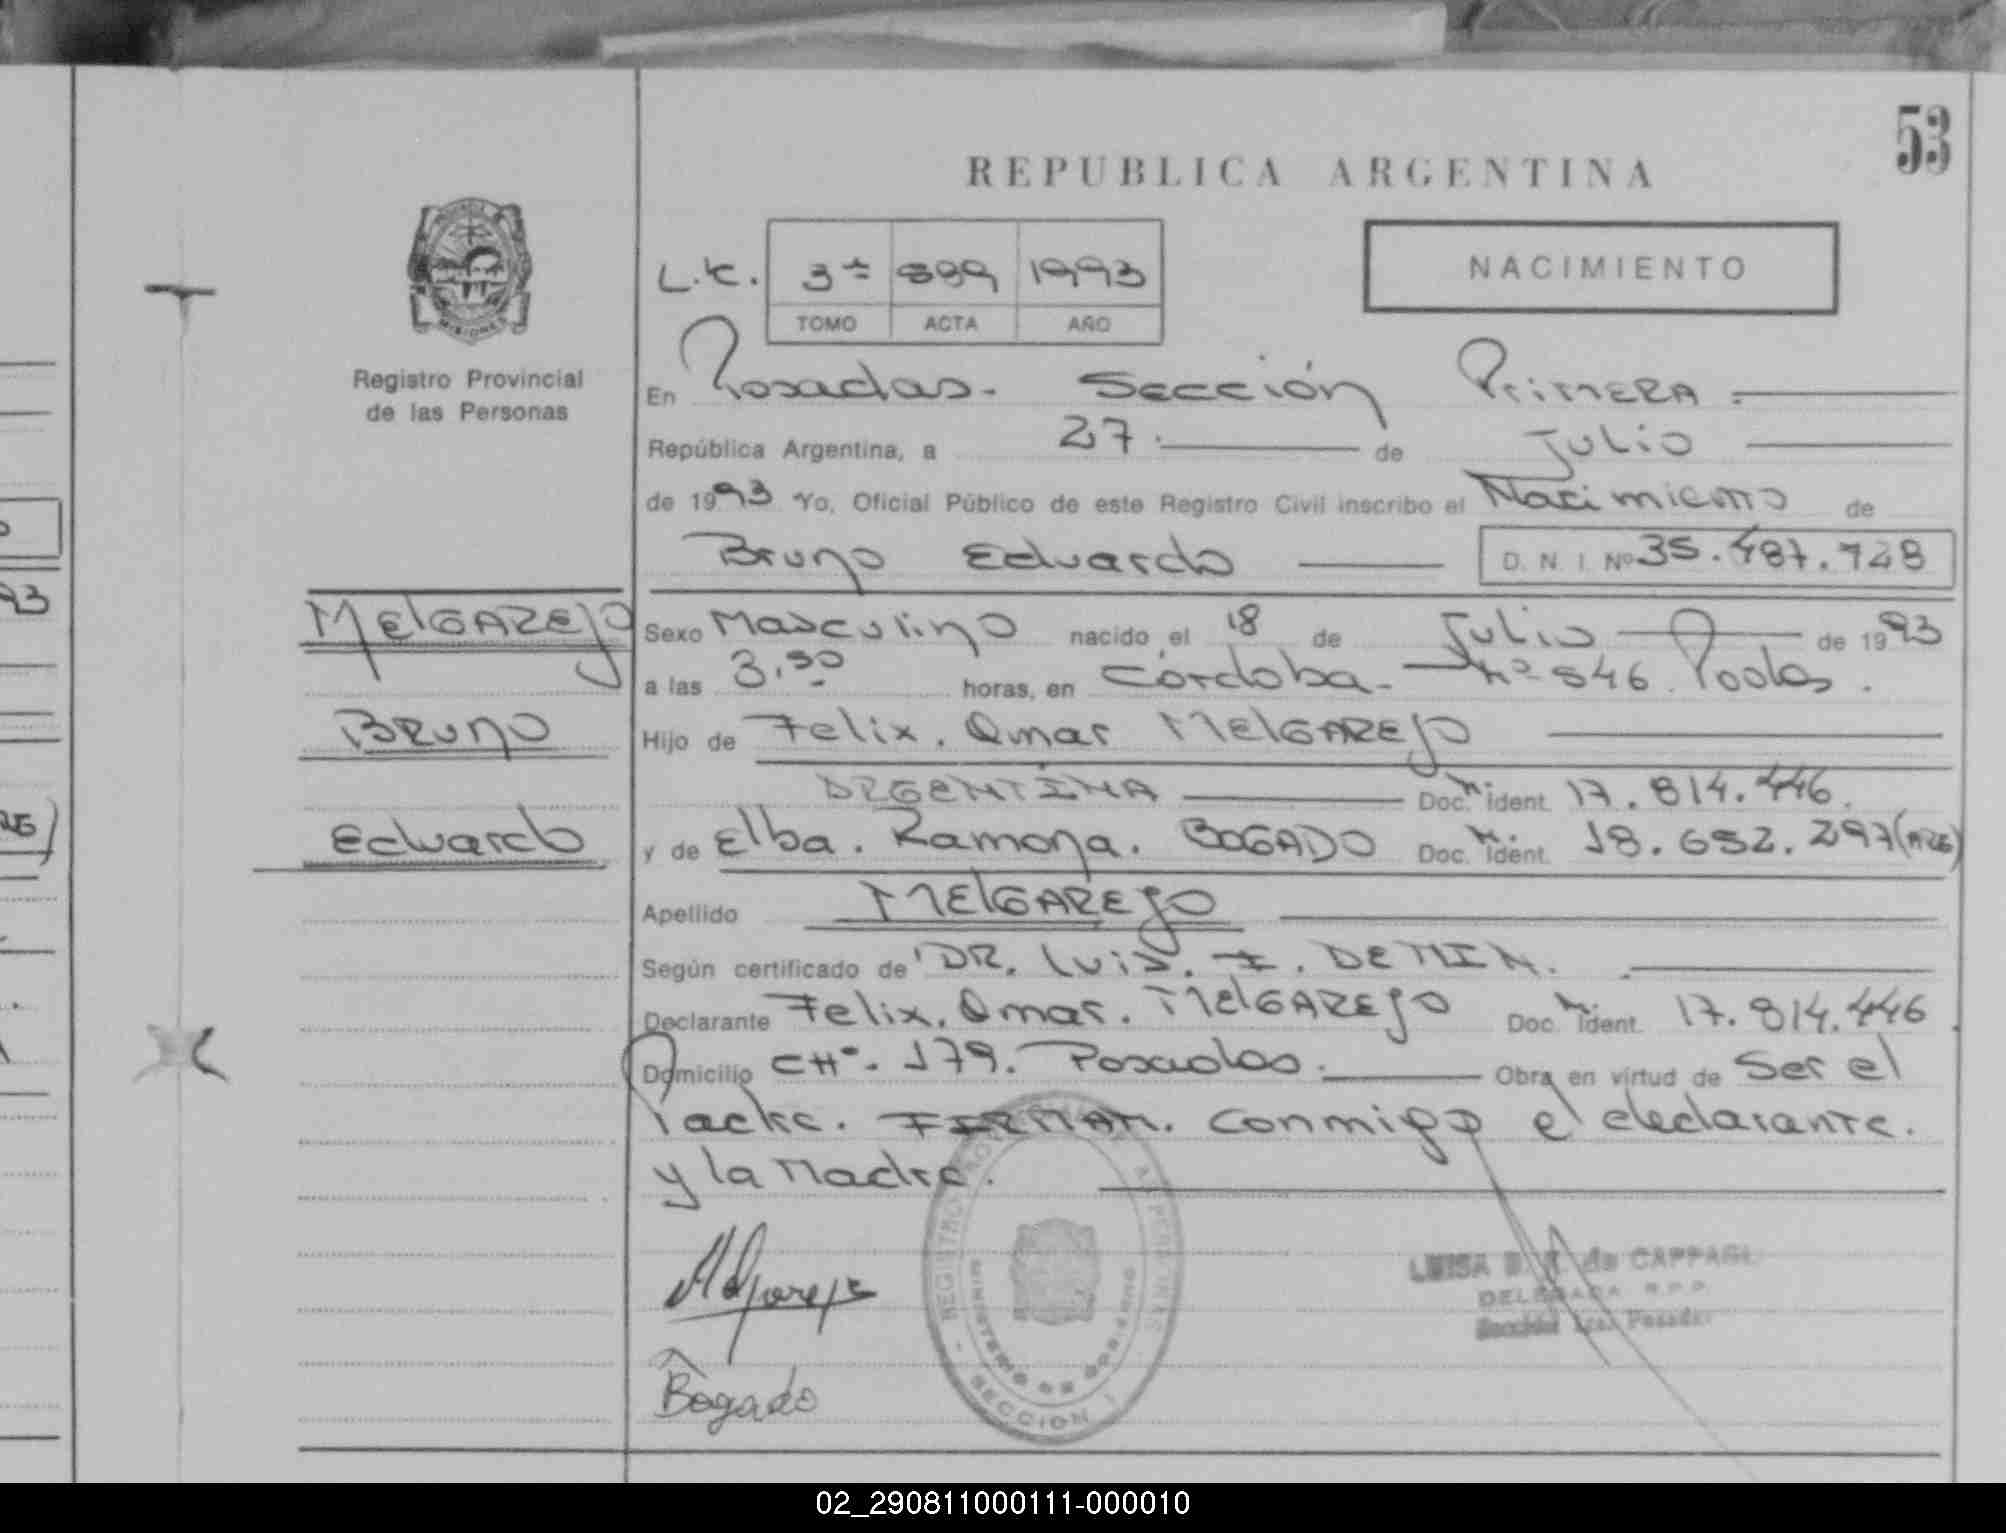 53
REPUBLICA ARGENTINA
NACIMIENTO
L.C. 3º 889 1993
TOMO ACTA AÑO
MISIONES
Registro Provincial
de las Personas
En Posadas. Sección Primera
República Argentina, a 27. de Julio
de 1993 Yo, Oficial Público de este Registro Civil inscribo el Nacimiento de
Bruno Eduardo D. N. I. Nº 35.487.728
MELGAREJO
Sexo Masculino nacido el 18 de Julio de 1993
a las 3,50 horas, en Córdoba. Nº 546. Posdas.
Bruno
Hijo de Felix. Omar MELGAREJO
ARGENTINA Doc. N. Ident. 17.814.446.
Eduardo
y de Elba. Ramona. BOGADO Doc. N. Ident. 18.652.297 (ARG)
Apellido MELGAREJO
Según certificado de DR. Luis. I. DEMIN.
Declarante Felix. Omar. MELGAREJO Doc. N. Ident. 17.814.446
Domicilio CHº. 179. Posadas. Obra en virtud de Ser el
Padre. FIRMAN. Conmigo el declarante.
y la Madre.
Melgarejo
Bogado
MINISTERIO DE GOBIERNO
SECCION 1
LUISA de CAPPAGLI
DELEGADA R.P.P.
Sección 1ra. Posadas
93
02_290811000111-000010